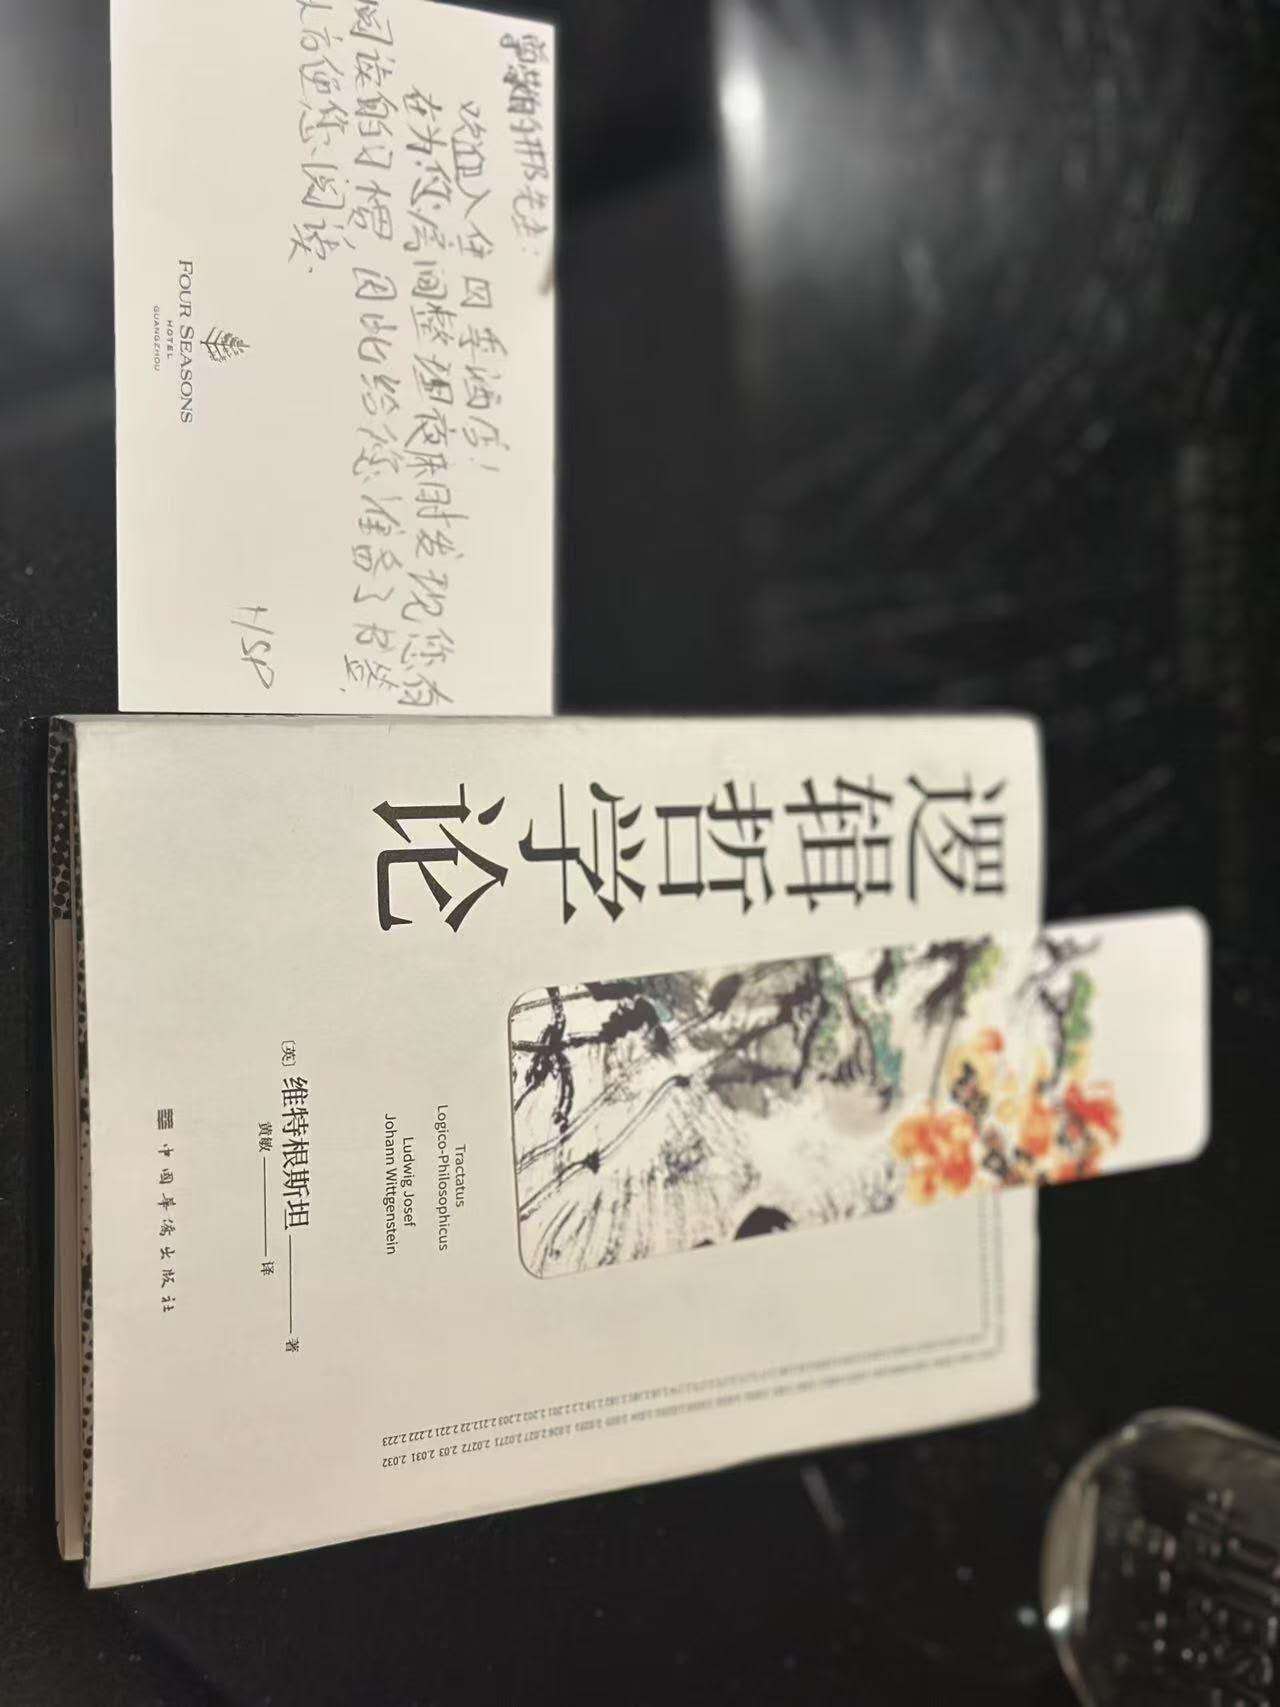 尊敬的邢先生：
欢迎入住四季酒店！
在为您房间整理夜床时发现您有
阅读的习惯，因此给您准备了书签，
以方便您阅读．
HSP
FOUR SEASONS
HOTEL
GUANGZHOU
逻辑哲学论
Tractatus
Logico-Philosophicus
Ludwig Josef
Johann Wittgenstein
〔英〕维特根斯坦 著
黄敏 译
中国华侨出版社
2.026 2.027 2.0271 2.0272 2.03 2.031 2.032
2.201 2.202 2.203 2.21 2.22 2.221 2.222 2.223